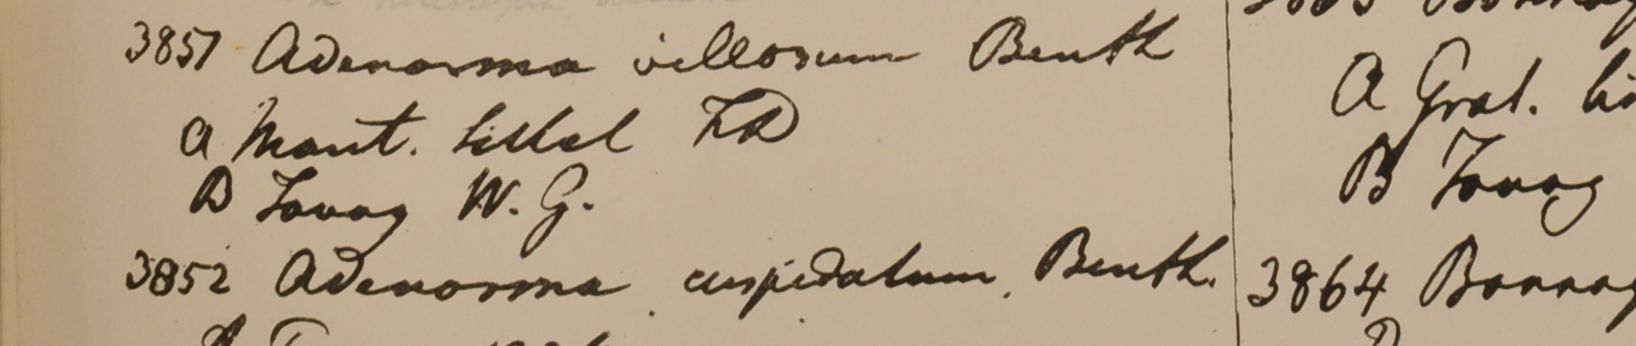 3851 Adenosma villosum Benth
A Mont. Sillet FD
B Tavoy W. G.
3852 Adenosma cuspidatum. Benth.
A Gral.
B Tavoy
3864